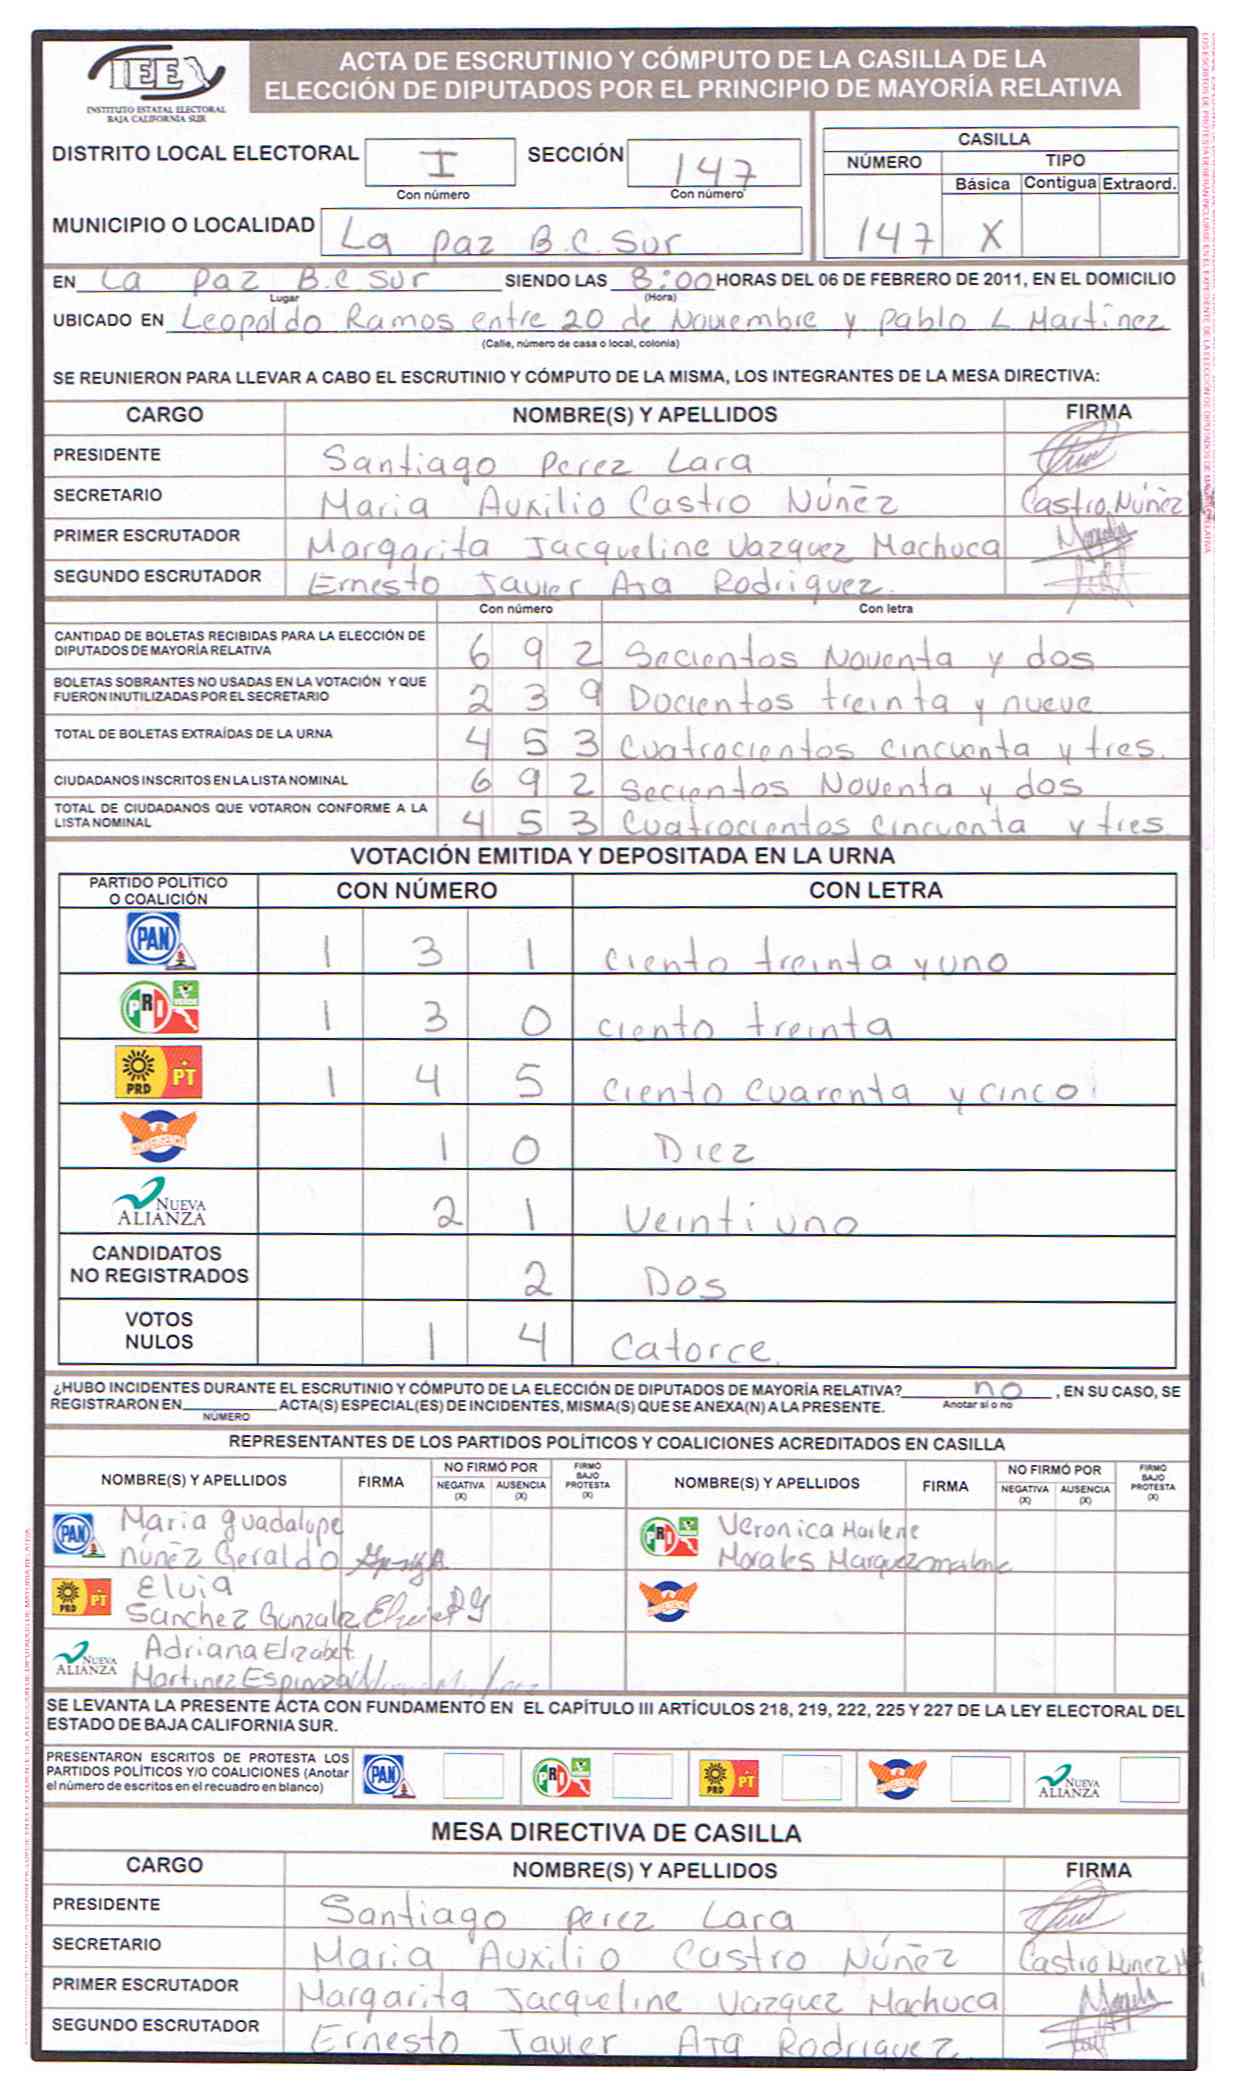 ACTA DE ESCRUTINIO Y CÓMPUTO DE LA CASILLA DE LA
ELECCIÓN DE DIPUTADOS POR EL PRINCIPIO DE MAYORÍA RELATIVA
IEEX
INSTITUTO ESTATAL ELECTORAL
BAJA CALIFORNIA SUR
DISTRITO LOCAL ELECTORAL I SECCIÓN 147
Con número Con número
MUNICIPIO O LOCALIDAD La paz B.C. Sur
CASILLA
NÚMERO TIPO
Básica Contigua Extraord.
147 X
EN La Paz B.C Sur SIENDO LAS 8:00 HORAS DEL 06 DE FEBRERO DE 2011, EN EL DOMICILIO
Lugar (Hora)
UBICADO EN Leopoldo Ramos entre 20 de Noviembre y pablo L Martínez
(Calle, número de casa o local, colonia)
SE REUNIERON PARA LLEVAR A CABO EL ESCRUTINIO Y CÓMPUTO DE LA MISMA, LOS INTEGRANTES DE LA MESA DIRECTIVA:
CARGO NOMBRE(S) Y APELLIDOS FIRMA
PRESIDENTE Santiago Perez Lara
SECRETARIO Maria Auxilio Castro Núñez Castro Núñez
PRIMER ESCRUTADOR Margarita Jacqueline Vazquez Machuca
SEGUNDO ESCRUTADOR Ernesto Javier Rodriguez
Con número Con letra
CANTIDAD DE BOLETAS RECIBIDAS PARA LA ELECCIÓN DE
DIPUTADOS DE MAYORÍA RELATIVA 6 9 2 Secientos Noventa y dos
BOLETAS SOBRANTES NO USADAS EN LA VOTACIÓN Y QUE
FUERON INUTILIZADAS POR EL SECRETARIO 2 3 9 Docientos treinta y nueve
TOTAL DE BOLETAS EXTRAÍDAS DE LA URNA 4 5 3 Cuatrocientos cincuenta y tres.
CIUDADANOS INSCRITOS EN LA LISTA NOMINAL 6 9 2 Secientos Noventa y dos
TOTAL DE CIUDADANOS QUE VOTARON CONFORME A LA
LISTA NOMINAL 4 5 3 Cuatrocientos cincuenta y tres
VOTACIÓN EMITIDA Y DEPOSITADA EN LA URNA
PARTIDO POLÍTICO
O COALICIÓN CON NÚMERO CON LETRA
PAN 1 3 1 Ciento treinta y uno
PRI VERDE 1 3 0 Ciento treinta
PRD PT 1 4 5 Ciento Cuarenta y cinco
CONVERGENCIA 1 0 Diez
NUEVA ALIANZA 2 1 Veinti uno
CANDIDATOS
NO REGISTRADOS 2 Dos
VOTOS
NULOS 1 4 Catorce.
¿HUBO INCIDENTES DURANTE EL ESCRUTINIO Y CÓMPUTO DE LA ELECCIÓN DE DIPUTADOS DE MAYORÍA RELATIVA? no , EN SU CASO, SE
Anotar sí o no
REGISTRARON EN ACTA(S) ESPECIAL(ES) DE INCIDENTES, MISMA(S) QUE SE ANEXA(N) A LA PRESENTE.
NÚMERO
REPRESENTANTES DE LOS PARTIDOS POLÍTICOS Y COALICIONES ACREDITADOS EN CASILLA
NOMBRE(S) Y APELLIDOS FIRMA NO FIRMÓ POR NEGATIVA (X) AUSENCIA (X) FIRMÓ BAJO PROTESTA (X) NOMBRE(S) Y APELLIDOS FIRMA NO FIRMÓ POR NEGATIVA (X) AUSENCIA (X) FIRMÓ BAJO PROTESTA (X)
PAN Maria guadalupe PRI Veronica Marlene
Núñez Geraldo Morales Marquez
PRD PT Elvia
Sanchez Gonzalez
NUEVA ALIANZA Adriana Elizabet
Martinez Espinoza
SE LEVANTA LA PRESENTE ACTA CON FUNDAMENTO EN EL CAPÍTULO III ARTÍCULOS 218, 219, 222, 225 Y 227 DE LA LEY ELECTORAL DEL
ESTADO DE BAJA CALIFORNIA SUR.
PRESENTARON ESCRITOS DE PROTESTA LOS
PARTIDOS POLÍTICOS Y/O COALICIONES (Anotar
el número de escritos en el recuadro en blanco)
PAN PRI PRD PT NUEVA ALIANZA
MESA DIRECTIVA DE CASILLA
CARGO NOMBRE(S) Y APELLIDOS FIRMA
PRESIDENTE Santiago perez Lara
SECRETARIO Maria Auxilio Castro Núñez Castro Nunez
PRIMER ESCRUTADOR Margarita Jacqueline Vazquez Machuca
SEGUNDO ESCRUTADOR Ernesto Javier Rodriguez